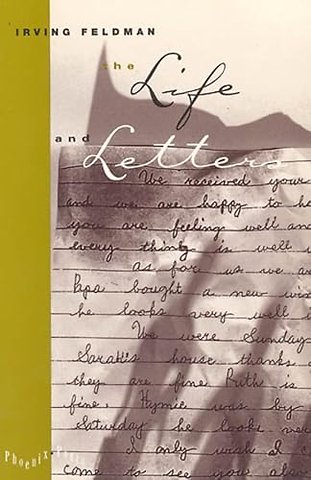 IRVING FELDMAN
the
Life
and
Letters
We received your
and we are happy to he
you are feeling well and
every thing is well w
as for us we are
Papa bought a new
he looks very well i
We were Sunday
Sarah's house thanks
they are fine Ruth is
fine. Hymie was by
Saturday he looks ver
I only wish I c
come to see you also
Phoenix